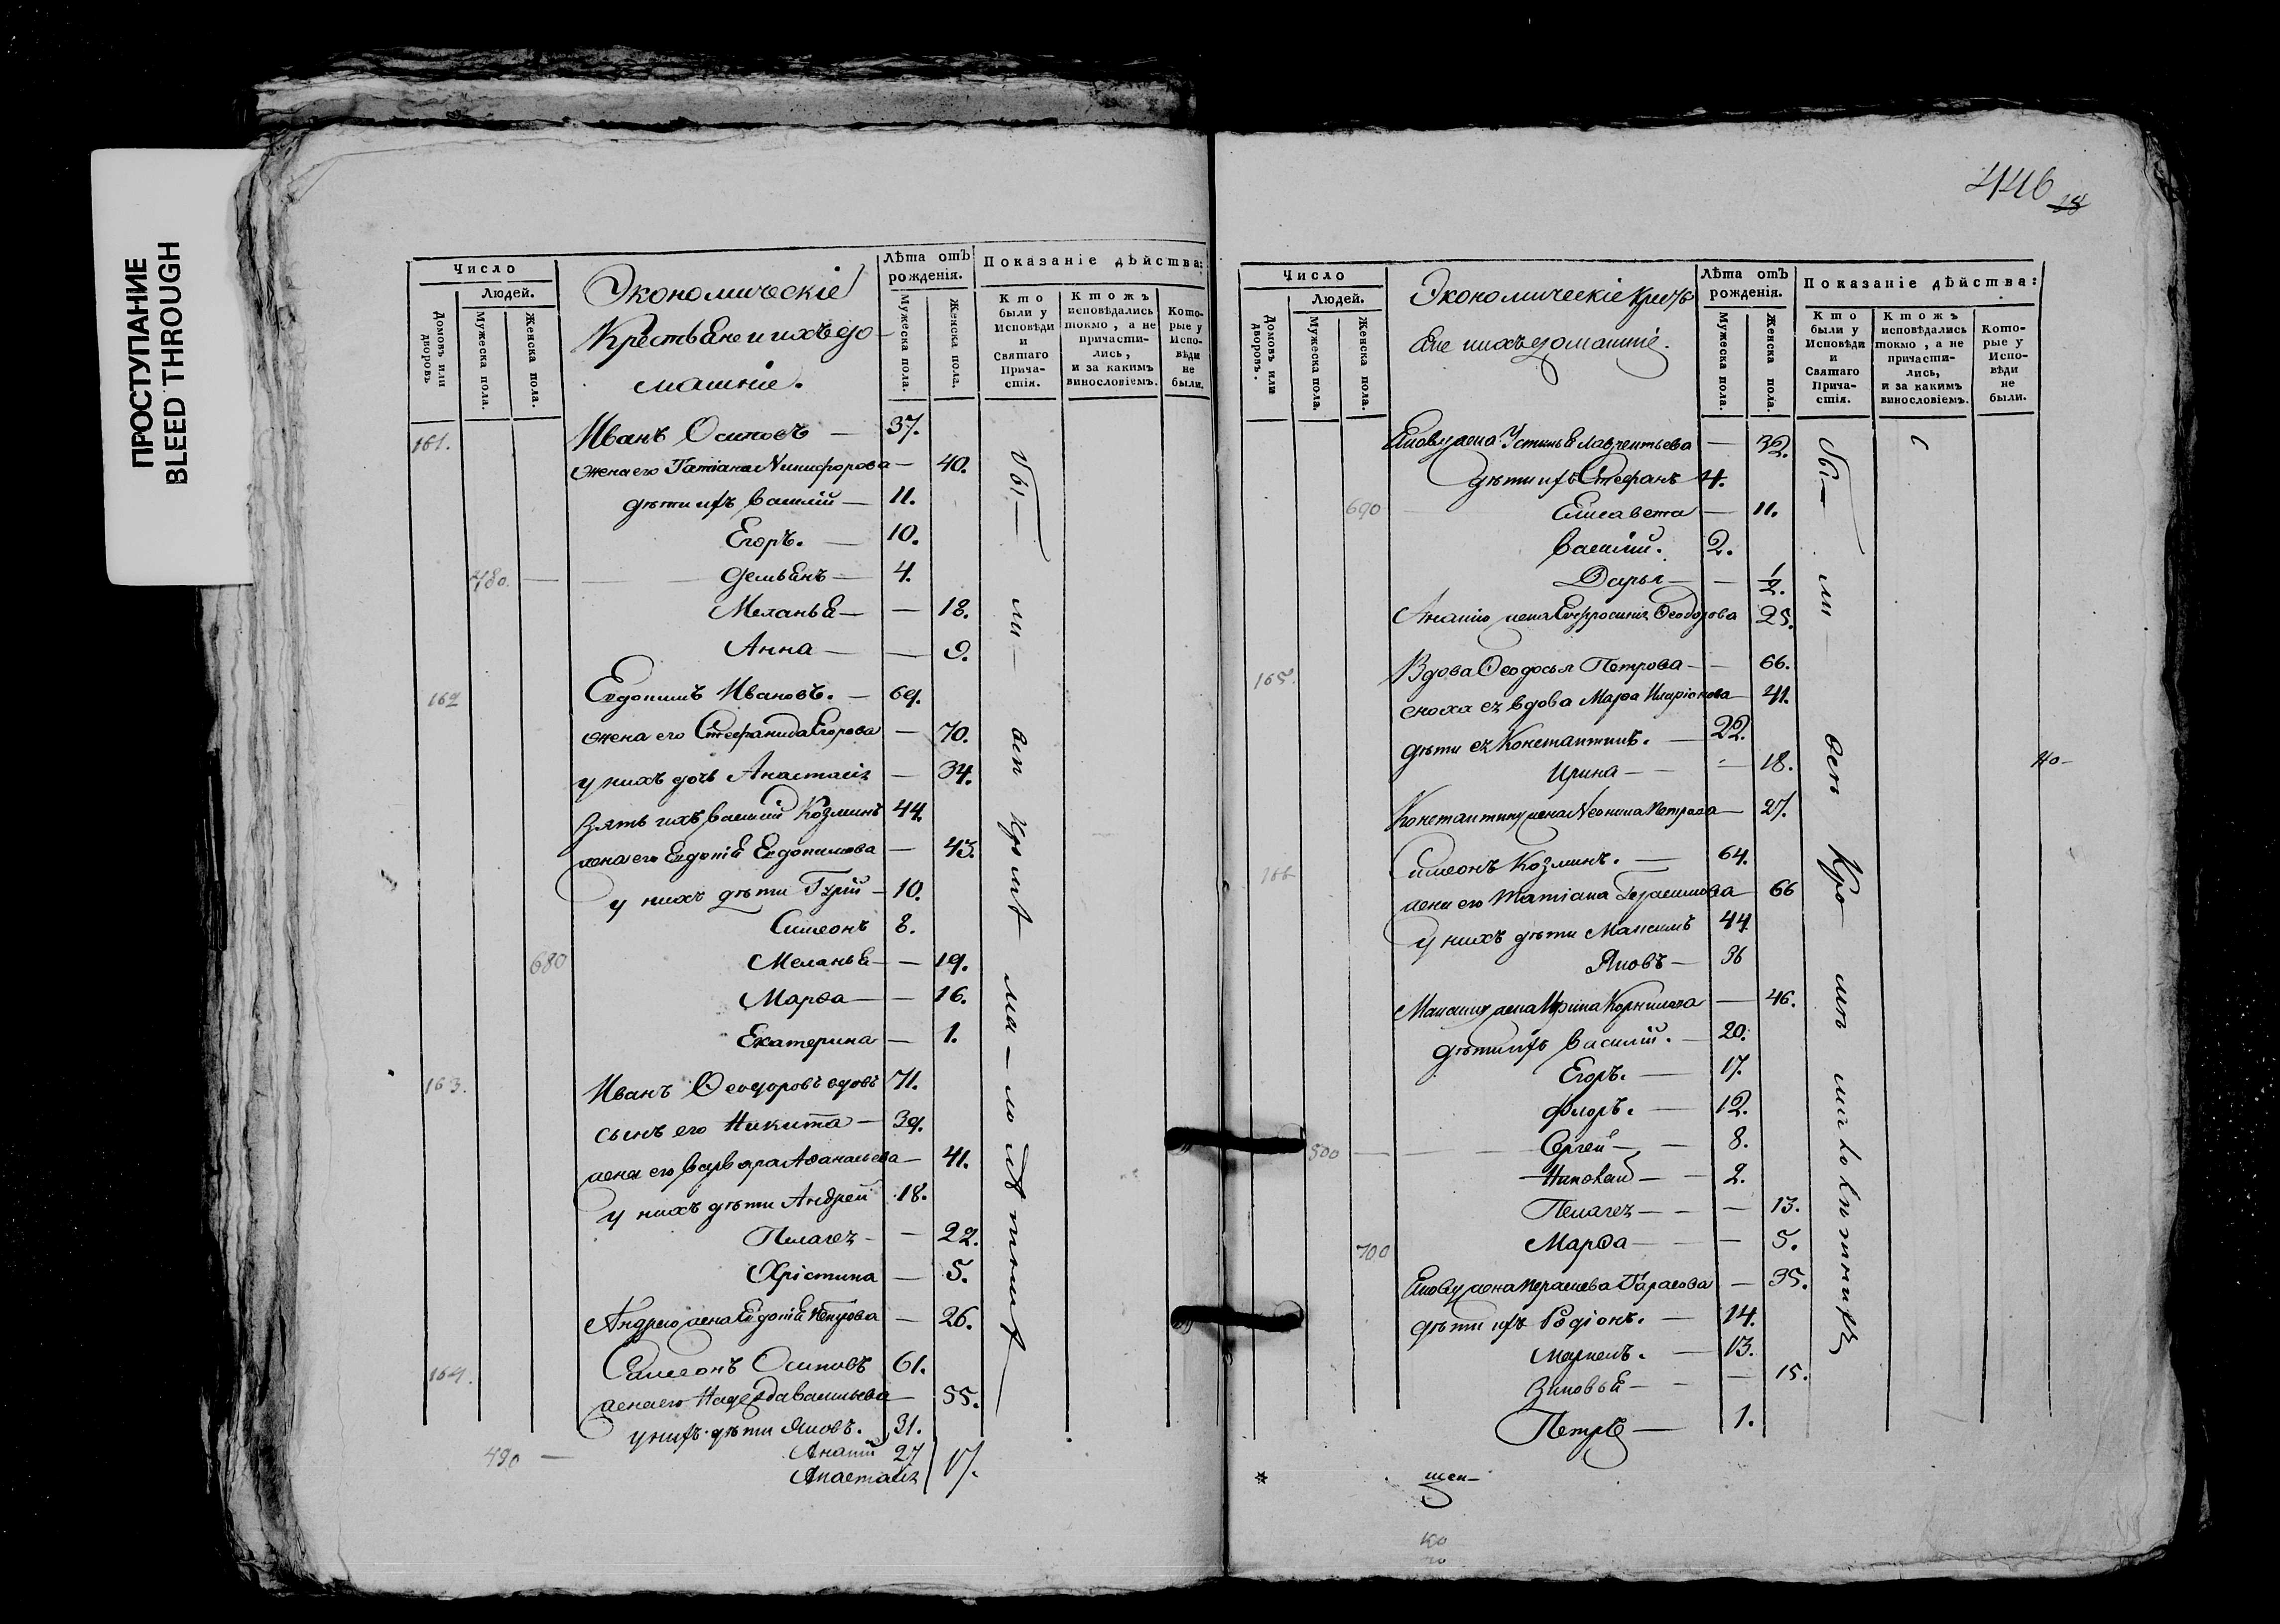 ПРОСТУПАНИЕ
BLEED THROUGH
Число
Людей.
Домовъ или дворовъ
Мужеска пола.
Женска пола.
Экономическіе
Крестьяне и ихъ до-
машніе.
Лѣта отъ рожденія.
Мужеска пола.
Женска пола.
Показаніе дѣйства:
Кто были у Исповѣди и Святаго Прича-стія.
Ктожъ исповѣдались токмо, а не причасти-лись, и за какимъ винословіемъ.
Кото-рые у Испо-вѣди не были.
161. Иванъ Осиповъ — 37.
жена его Татіана Никифорова — 40.
дѣти ихъ Василій — 11.
Егоръ. — 10.
480. — Демьянъ — 4.
Меланья — — 18.
Анна — — 9.
162 Евдокимъ Ивановъ. — 69.
жена его Стефанида Егорова — 70.
у нихъ дочь Анастасія — 34.
Зять ихъ Василій Козминъ 44.
жена его Евдокія Евдокимова — 43.
у нихъ дѣти Гурій — 10.
Симеонъ 8.
680 Меланья — — 19.
Марѳа — — 16.
Екатерина — 1.
163. Иванъ Ѳеодоровъ вдовъ 71.
сынъ его Никита — 39.
жена его Варвара Аѳанасьева — 41.
у нихъ дѣти Андрей 18.
Пелагея — — 22.
Христина — 5.
Андрею жена Евдокія Петрова — 26.
164. Симеонъ Осиповъ 61.
жена его Надежда Васильева — 55.
у нихъ дѣти Яковъ. 31.
490 — Ананій 27
Анастасія 17.
бы— ли—
446
18
Число
Людей.
Домовъ или дворовъ.
Мужеска пола.
Женска пола.
Экономическіе Кресть
яне и ихъ домашніе.
Лѣта отъ рожденія.
Мужеска пола.
Женска пола.
Показаніе дѣйства:
Кто были у Исповѣди и Святаго Прича-стія.
Ктожъ исповѣдались токмо, а не причасти-лись, и за какимъ винословіемъ.
Кото-рые у Испо-вѣди не были.
Якову жена Устинья Лаврентьева — 32.
дѣти ихъ Стефанъ 4.
690 Елисавета — 11.
Василій. 2.
Дарья — — 1/2.
Ананію жена Евфросинія Ѳеодорова 25.
165. Вдова Ѳеодосья Петрова — — 66.
сноха ея вдова Марѳа Иларіонова — 41.
дѣти ея Константинъ. — 22.
Ирина — — 18.
Константину жена Неонила Петрова — 27.
166 Симеонъ Козминъ. — 64.
жена его Татіана Герасимова — 66
у нихъ дѣти Максимъ 44
Яковъ — 36
Максиму жена Ирина Корнилова — 46.
дѣти ихъ Василій. — 20.
Егоръ. — 17.
Флоръ. — 12.
500 — Сергей — — 8.
Николай — — 2.
Пелагея — — — 13.
700 Марѳа — — 5.
Якову жена Парасцева Тарасова — 35.
дѣти ихъ Родіонъ. — 14.
Маркелъ. — 13.
Зиновья — — — 15.
Петръ — 1.
бы— ли